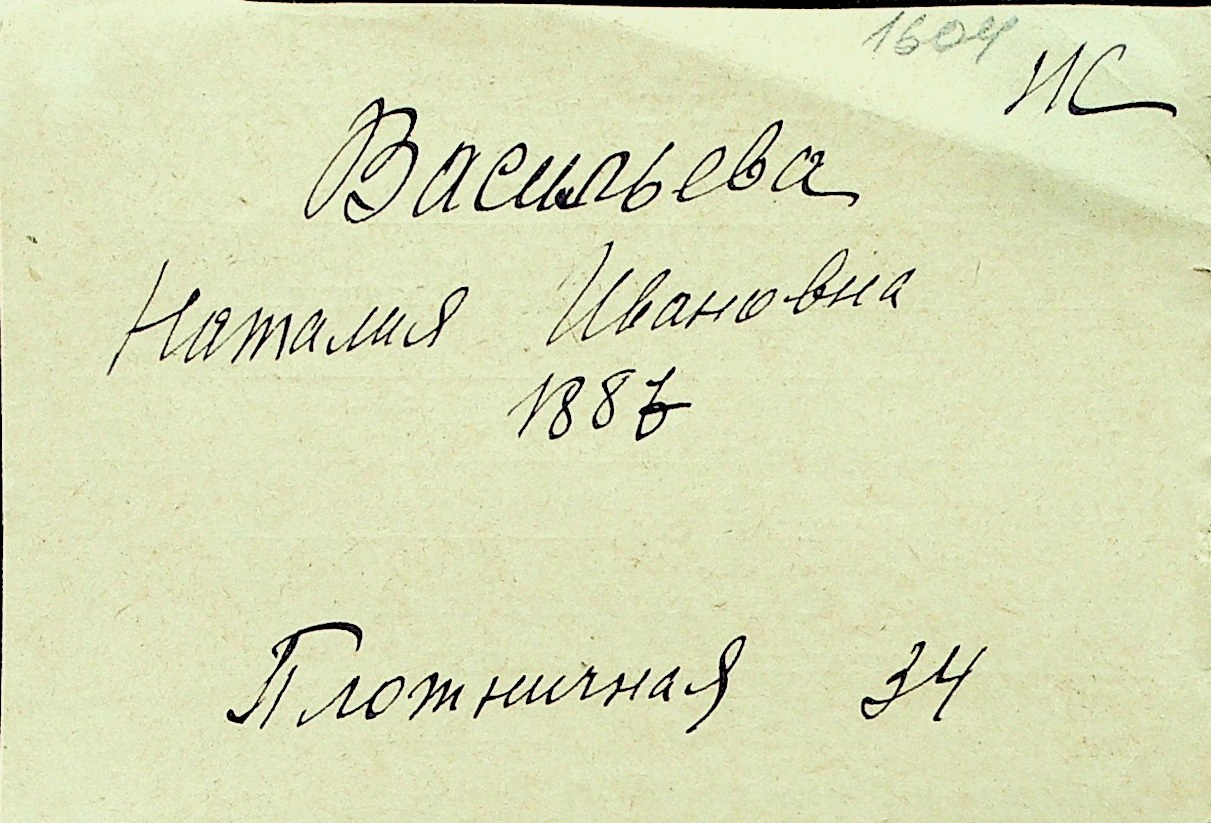 1604
ИС
Васильева
Наталия Ивановна
1887
Плотничная 34